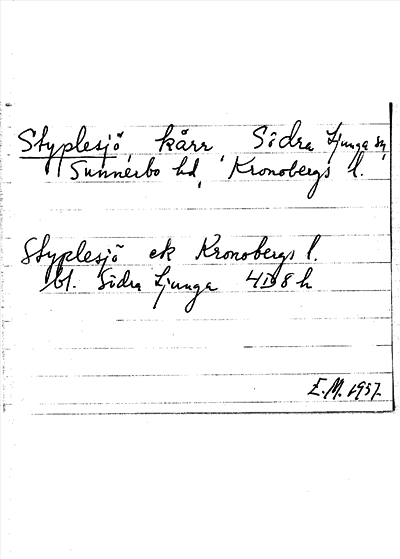 Styplesjö, kärr, Södra Ljunga sn,
Sunnerbo hd, Kronobergs l.
Styplesjö ek Kronobergs l.
bl. Södra Ljunga 4ID8h
E.M. 1957.